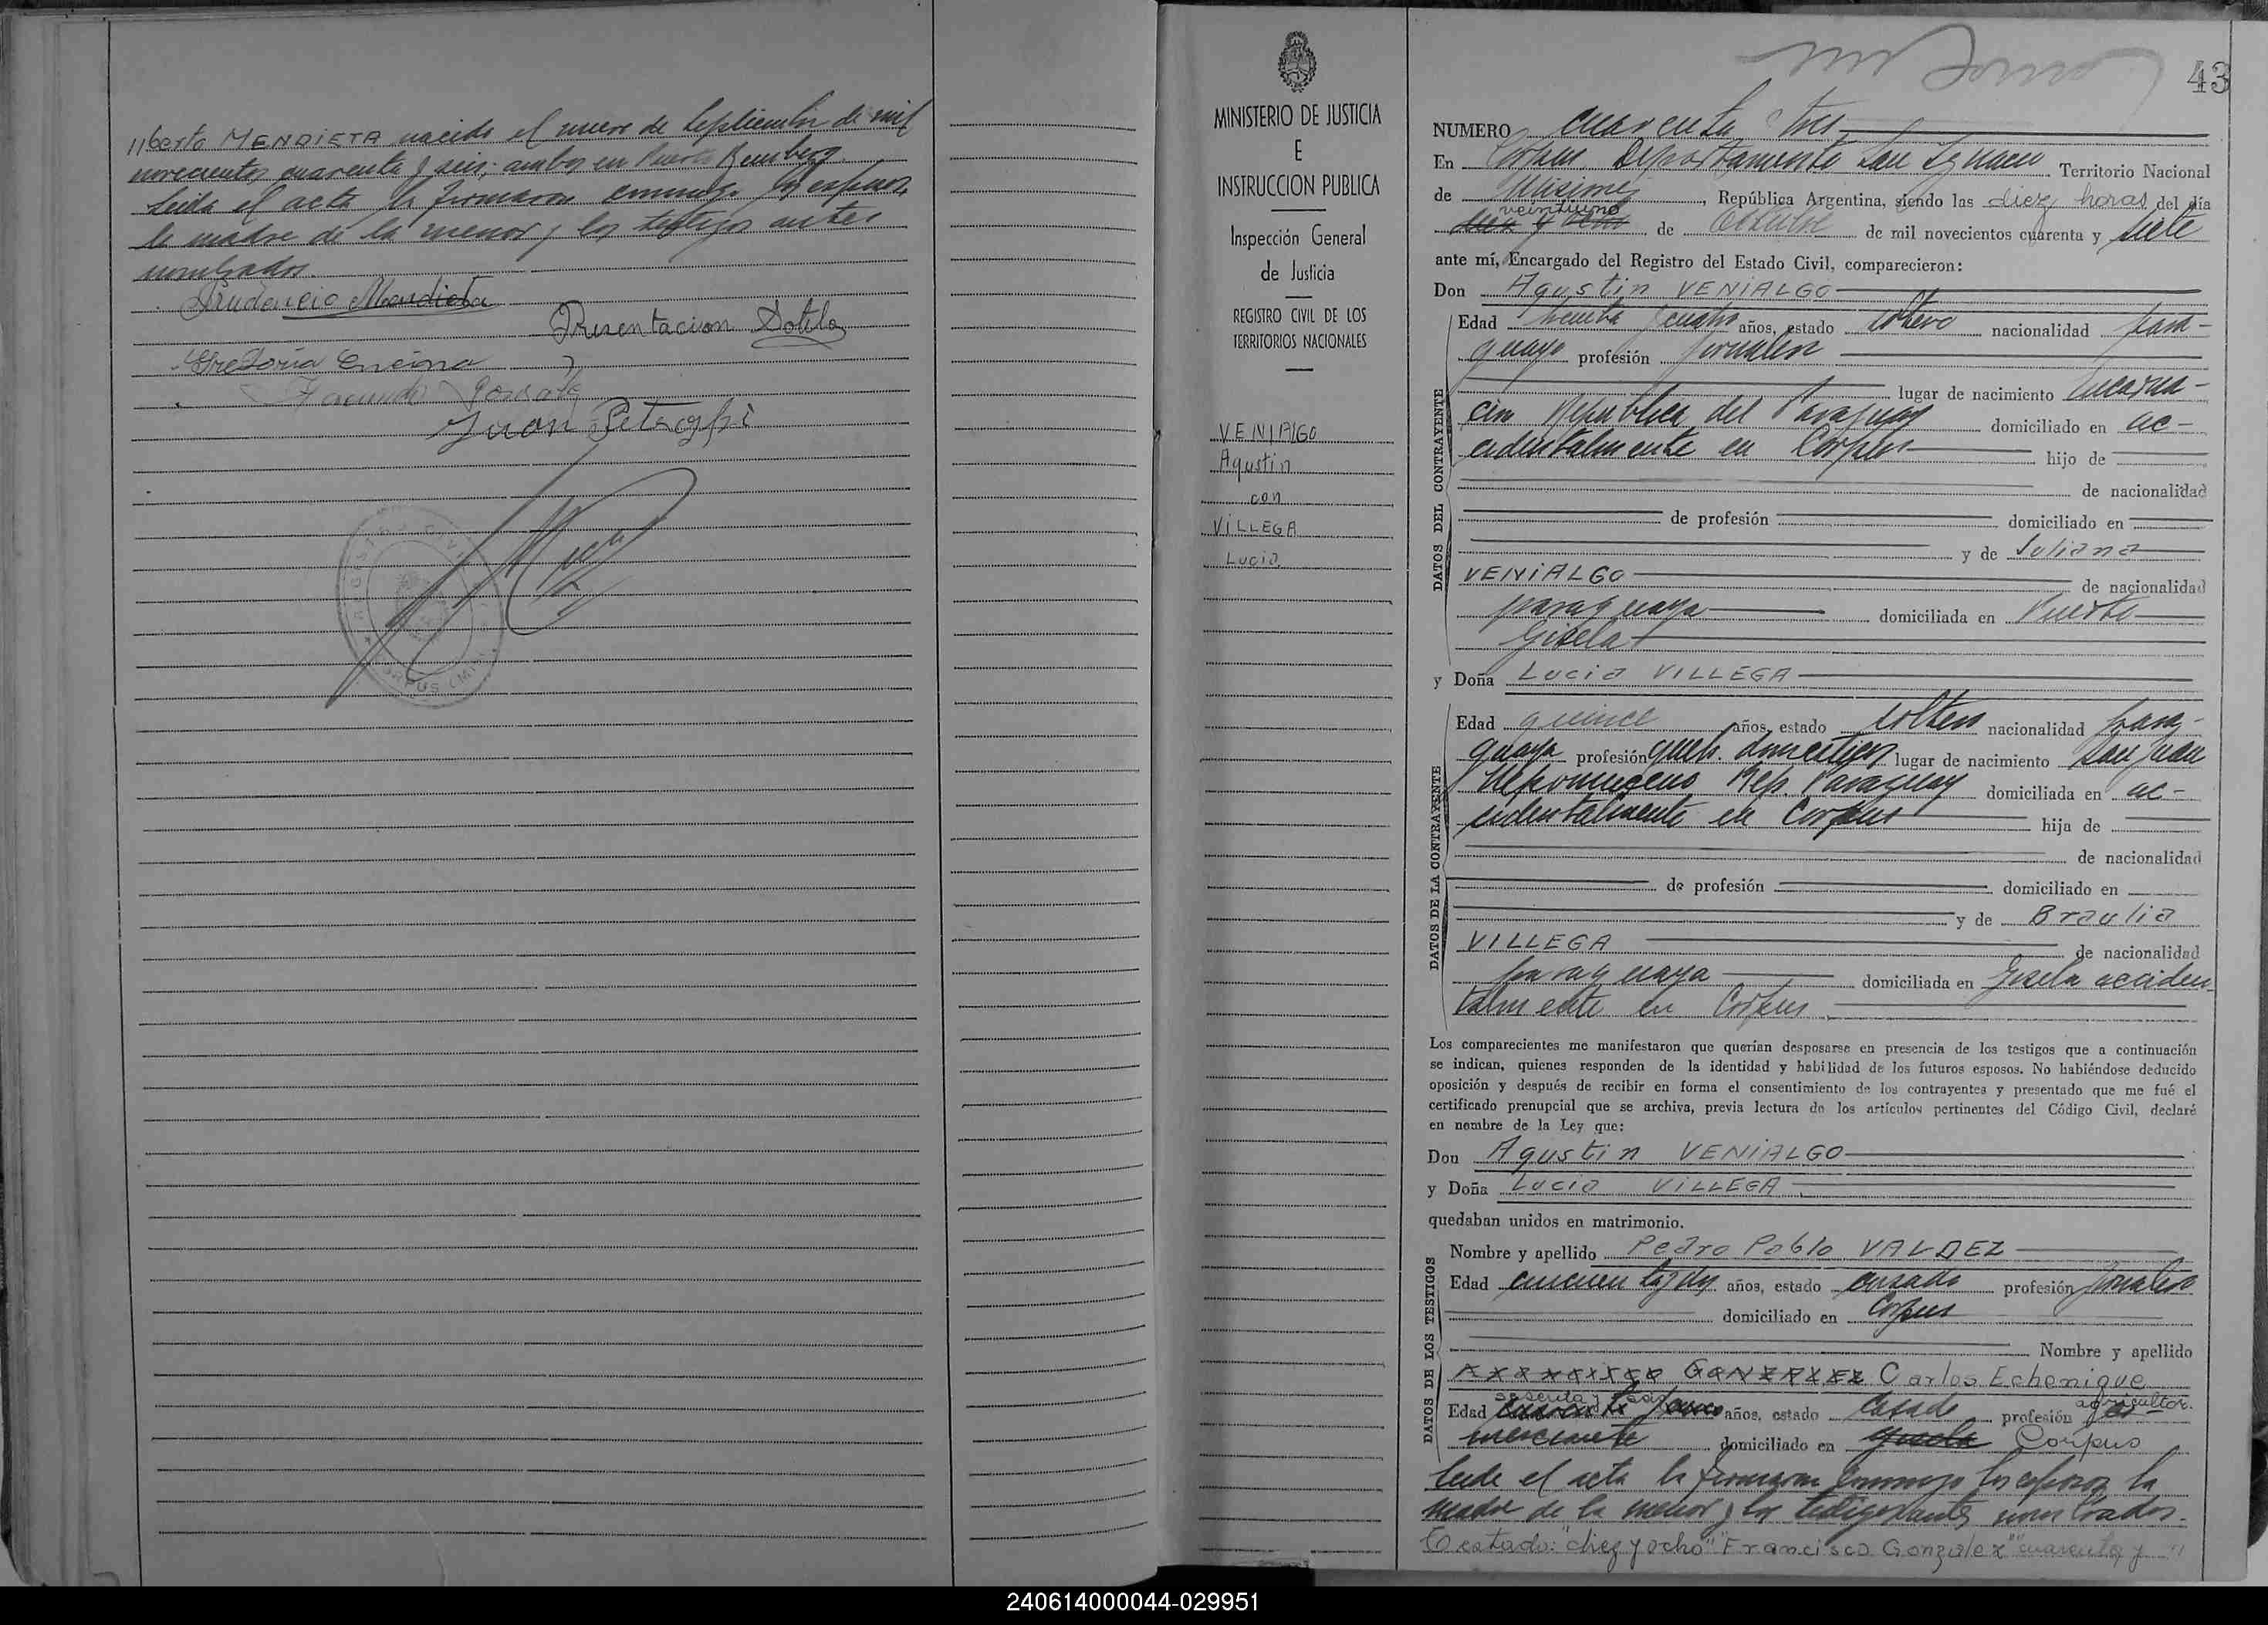 //berto MENDIETA nacido el nueve de Septiembre de mil
novecientos cuarenta y seis; ambos en Puerto Bemberg.
Leida el acta la firmaron conmigo los esposos
la madre de la menor y los testigos antes
nombrados.
Prudencio Mendieta
Presentacion Sotelo
Gregoria Encina
Facundo Gonzale
Juan
REGISTRO CIVIL
CORPUS (MIS
MINISTERIO DE JUSTICIA
E
INSTRUCCION PUBLICA
Inspección General
de Justicia
REGISTRO CIVIL DE LOS
TERRITORIOS NACIONALES
VENIALGO
Agustin
con
VILLEGA
Lucia
43
NUMERO cuarenta y tres
En Corpus Departamento San Ignacio Territorio Nacional
de Misiones, República Argentina, siendo las diez horas del día
veintiuno
diez y ocho de Octubre de mil novecientos cuarenta y siete
ante mí, Encargado del Registro del Estado Civil, comparecieron:
Don Agustin VENIALGO
Edad treinta y cuatro años, estado soltero nacionalidad para-
guaya profesión jornalero
lugar de nacimiento Encarna-
cion Republica del Paraguay domiciliado en ac-
cidentalmente en Corpus hijo de
de nacionalidad
de profesión domiciliado en
y de Juliana
VENIALGO de nacionalidad
paraguaya domiciliada en Puerto
Gisela
y Doña Lucia VILLEGA
Edad quince años, estado soltera nacionalidad para-
guaya profesión queh. domesticos lugar de nacimiento San Juan
Nepomuceno Rep. Paraguay domiciliada en ac-
cidentalmente en Corpus hija de
de nacionalidad
de profesión domiciliado en
y de Braulia
VILLEGA de nacionalidad
paraguaya domiciliada en Gisela acciden
talmente en Corpus
Los comparecientes me manifestaron que querían desposarse en presencia de los testigos que a continuación
se indican, quienes responden de la identidad y habilidad de los futuros esposos. No habiéndose deducido
oposición y después de recibir en forma el consentimiento de los contrayentes y presentado que me fué el
certificado prenupcial que se archiva, previa lectura de los artículos pertinentes del Código Civil, declaré
en nombre de la Ley que:
Don Agustin VENIALGO
y Doña Lucia VILLEGA
quedaban unidos en matrimonio.
Nombre y apellido Pedro Pablo VALDEZ
Edad cincuenta y dos años, estado casado profesión jornalero
domiciliado en Corpus
Nombre y apellido
Francisco GONZALEZ Carlos Echenique
sesenta y
Edad cuarenta y años, estado casado profesión agricultor. co-
merciante domiciliado en Gisela Corpus
Leida el acta la firmaron conmigo los esposos la
madre de la menor y los testigos antes nombrados.
Testado: "diez y ocho" "Francisco Gonzalez" "cuarenta y "
DATOS DEL CONTRAYENTE
DATOS DE LA CONTRAYENTE
DATOS DE LOS TESTIGOS
240614000044-029951